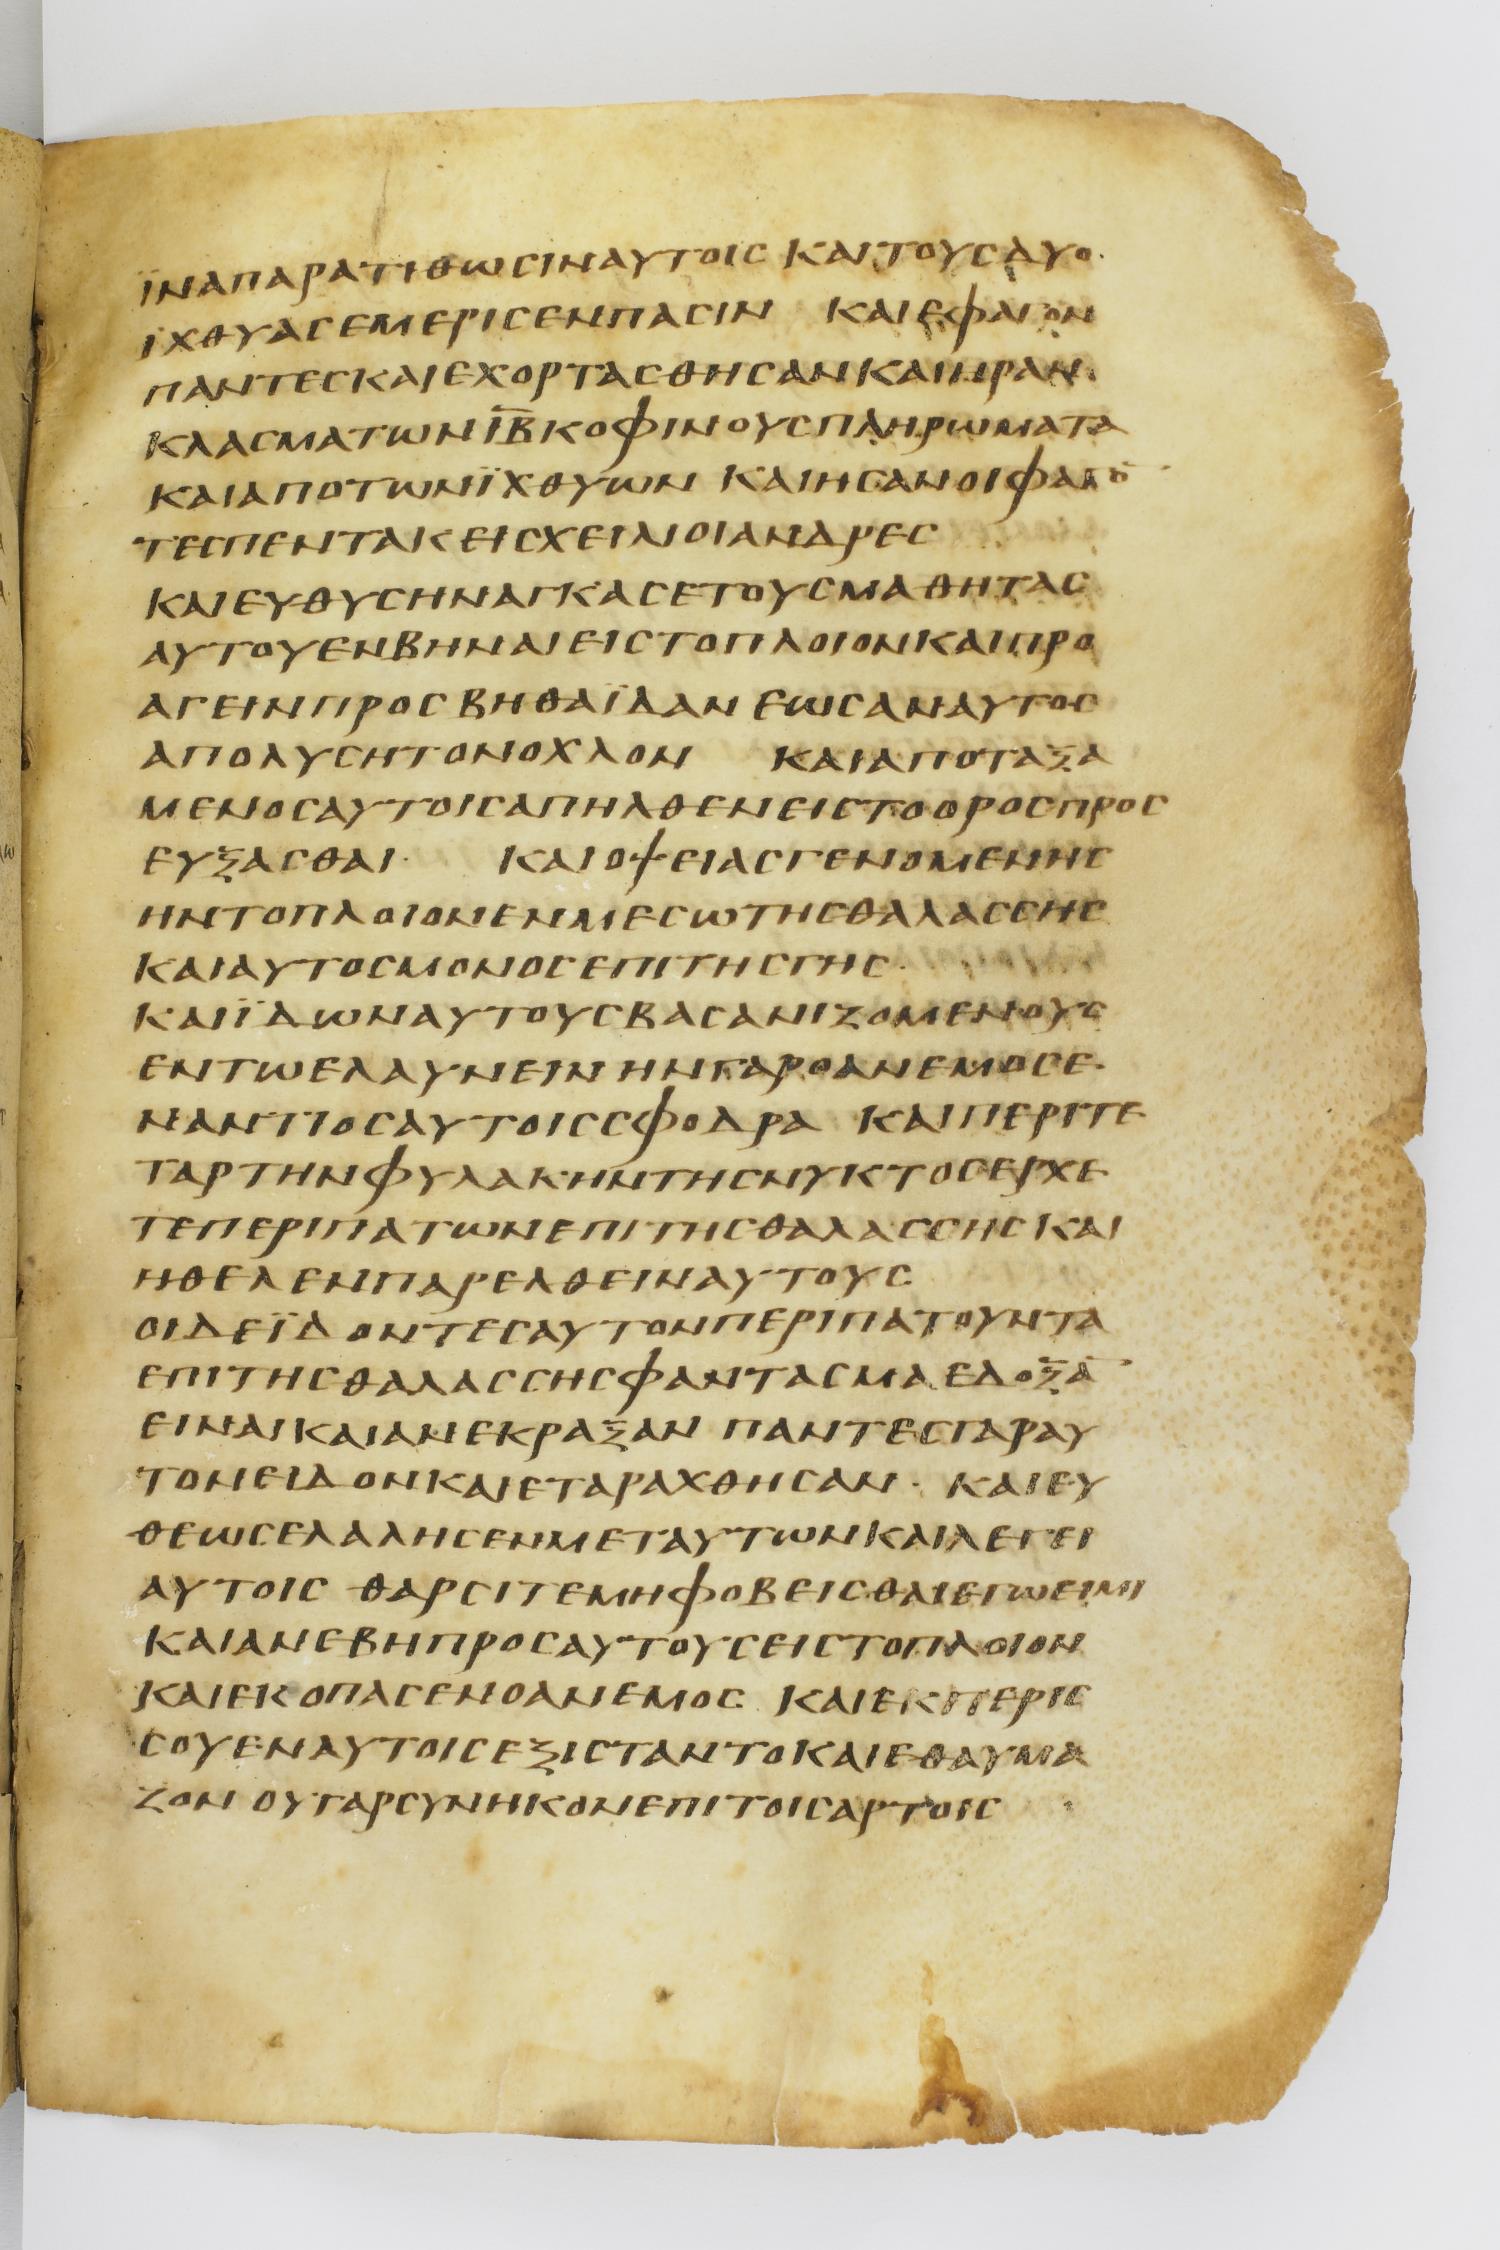 ϊναπαρατιθωσιναυτοις καιτουσδυο·
ϊχθυασεμερισενπασιν καιεφαγον
παντεσκαιεχορτασθησανκαιηραν
κλασματωνι̅β̅κοφινουσπληρωματα
καιαποτωνϊχθυων καιησανοιφαγο̅
τεσπεντακεισχειλιοιανδρεσ
καιευθυσηναγκασετουσμαθητασ
αυτουενβηναιειστοπλοιονκαιπρο
αγεινπροσβηθαϊδαν εωσαναυτοσ
απολυσητονοχλον καιαποταξα
μενοσαυτοισαπηλθενειστοοροσπροσ
ευξασθαι· καιοψειασγενομενησ
ηντοπλοιονενμεσωτησθαλασσησ
καιαυτοσμονοσεπιτησγησ·
καιϊδωναυτουσβασανιζομενουσ
εντωελαυνειν ηνγαροανεμοσε
ναντιοσαυτοισσφοδρα καιπεριτε
ταρτηνφυλακηντησνυκτοσερχε
τεπεριπατωνεπιτησθαλασσησκαι
ηθελενπαρελθειναυτουσ
οιδεϊδοντεσαυτονπεριπατουντα
επιτησθαλασσησφαντασμαεδοξα̅
ειναικαιανεκραξαν παντεσγαραυ
τονειδονκαιεταραχθησαν· καιευ
θεωσελαλησενμεταυτωνκαιλεγει
αυτοισ θαρσιτεμηφοβεισθαιεγωειμι
καιανεβηπροσαυτουσειστοπλοιον
καιεκοπασενοανεμοσ καιεκπερισ
σουεναυτοισεξισταντοκαιεθαυμα
ζον ουγαρσυνηκονεπιτοισαρτοισ